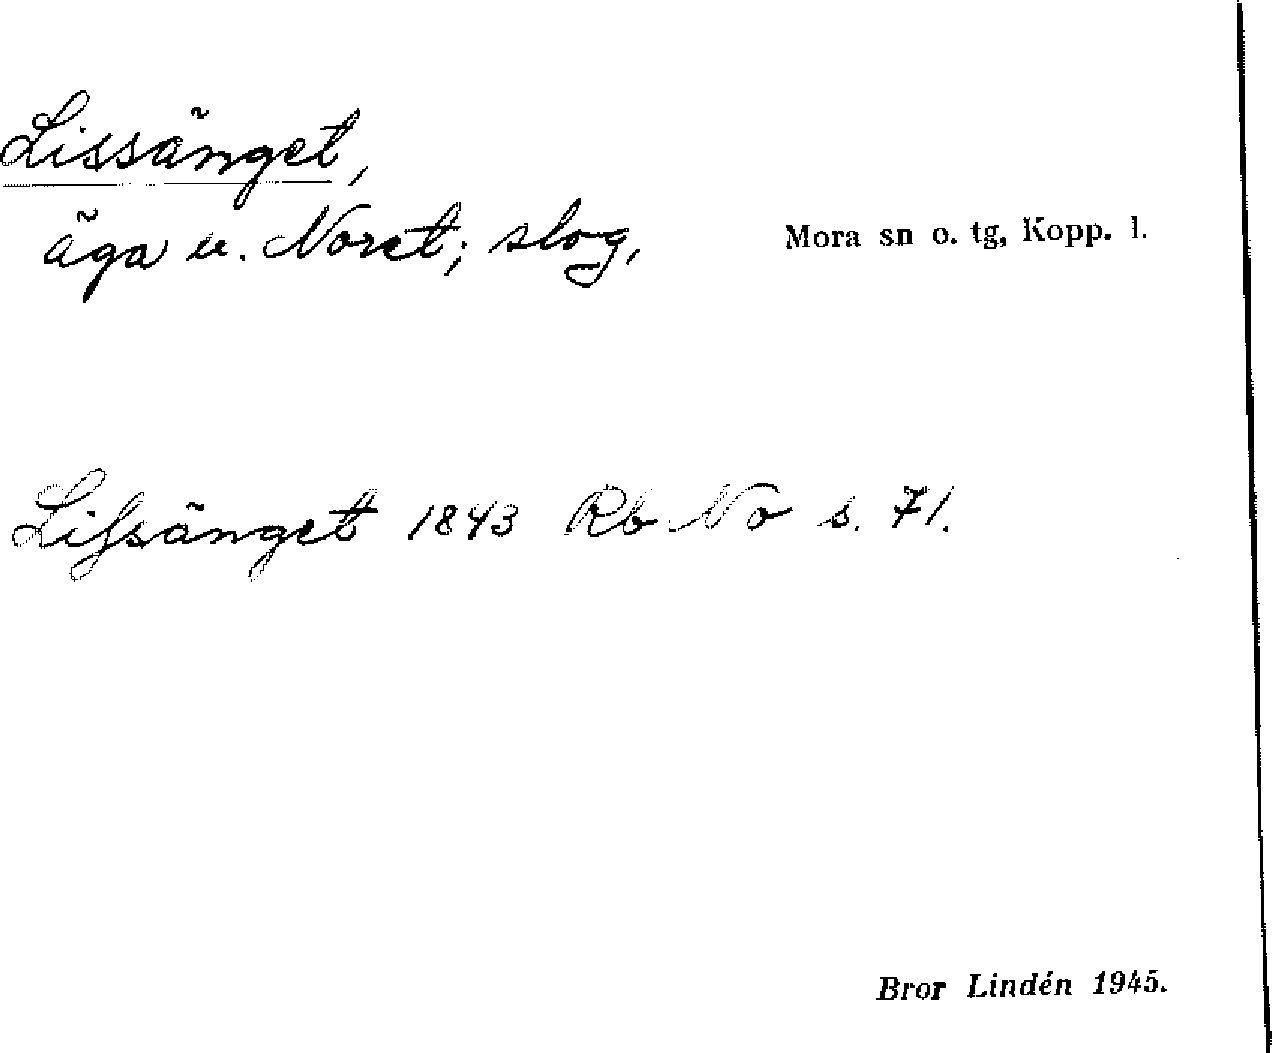 Lissänget,
äga u. Noret; slog,
Mora sn o. tg, Kopp. l.
Lifsänget 1843 Rb No s. 71.
Bror Lindén 1945.